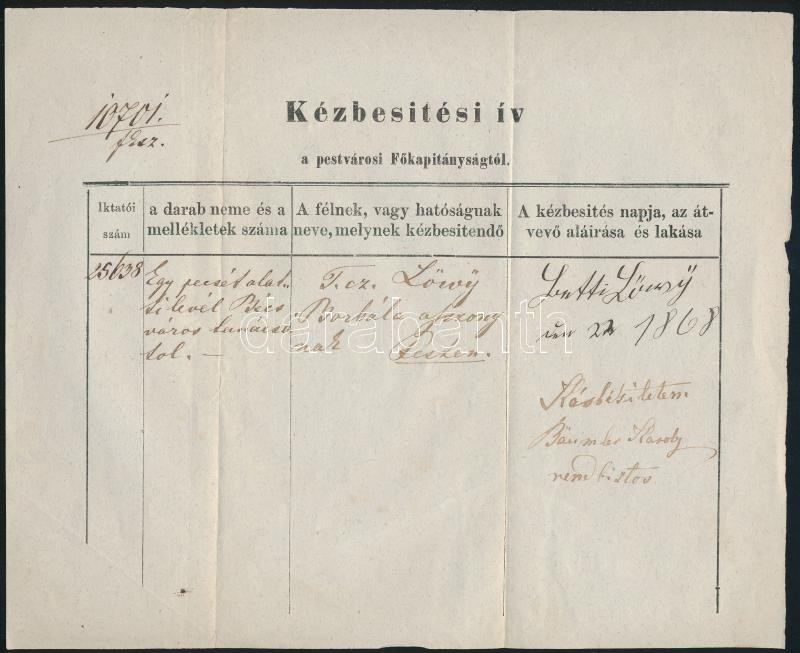 10701.
Kézbesitési ív
a pestvárosi Főkapitányságtól.
Iktatói
szám
a darab neme és a
mellékletek száma
A félnek, vagy hatóságnak
neve, melynek kézbesitendő
A kézbesités napja, az át-
vevő aláirása és lakása
25638
Egy pecsét alat-
ti levél Bécs
város tanácsá
tol. —
T. cz. Löwy
Borbála aszony
nak Pesten.
Betti Löwÿ
den 22 1868
Kézbesitetem
Bäumler Karoly
rendbiztos
darabanth